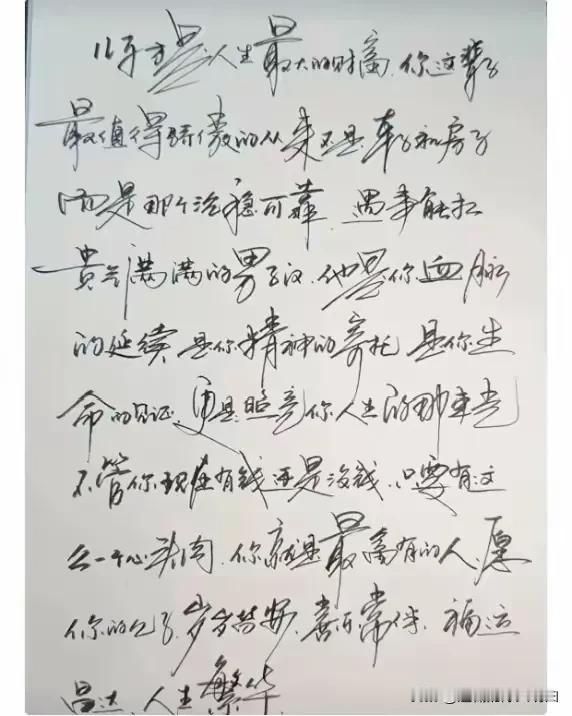 儿子才是人生最大的财富，你这辈子
最值得骄傲的从来不是车子和房子
而是那个沉稳可靠，遇事能扛
贵气满满的男子汉，他是你血脉
的延续是你精神的寄托是你生
命的见证，更是照亮你人生的那束光
不管你现在有钱还是没钱，只要有这
么一个心头肉，你就是最富有的人，愿
你的儿子，岁岁平安，喜乐常伴，福运
昌达，人生繁华，